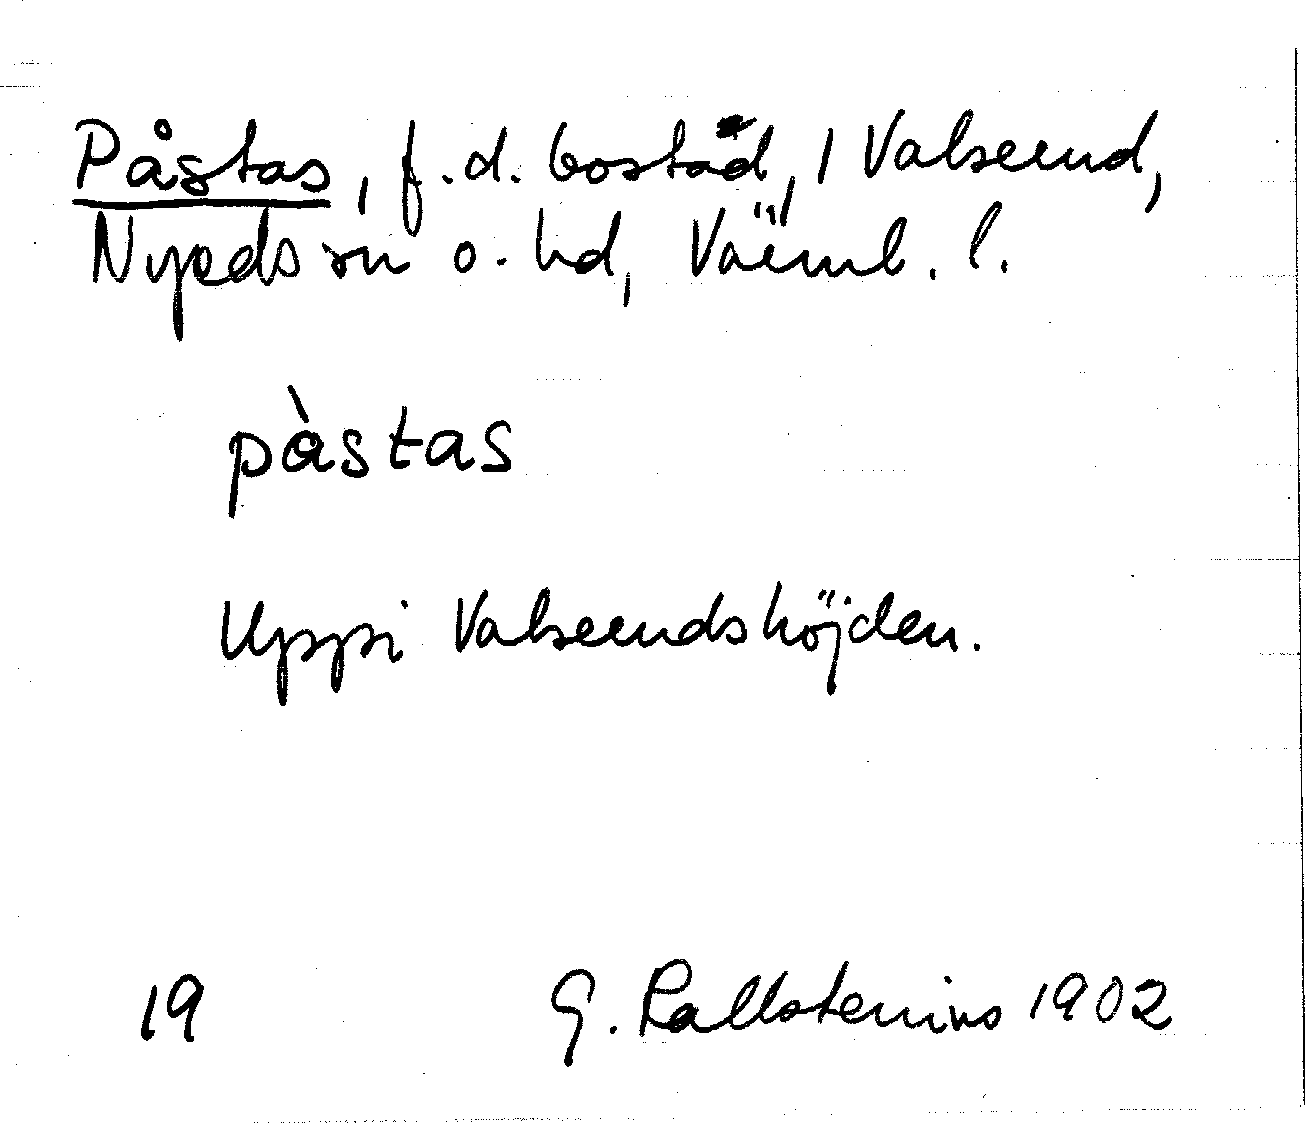 Påstas, f.d. bostad, i Valserud,
Nyeds sn o. hd, Värml. l.
pàstas
Uppi Valserudshöjden.
19 G. Kallstenius 1902